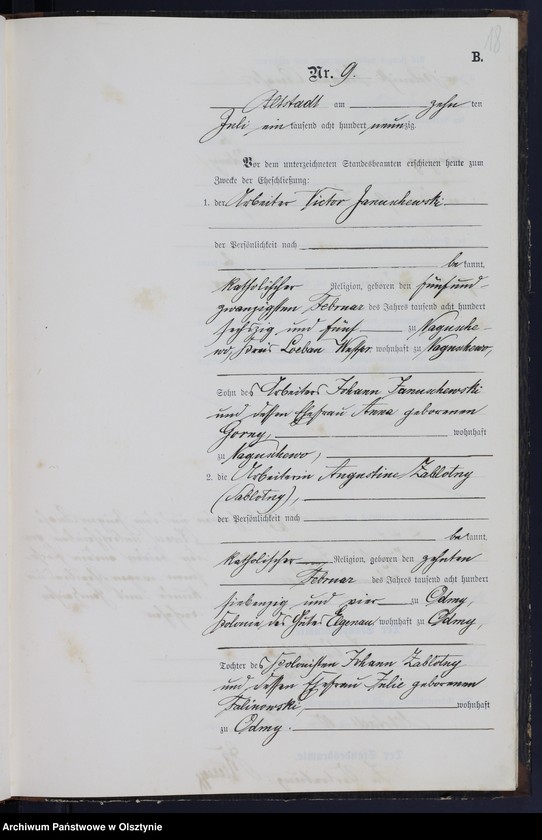 18
B.
Nr. 9.
Altstadt am zehn ten
Juli ein tausend acht hundert neun zig.
Vor dem unterzeichneten Standesbeamten erschienen heute zum
Zwecke der Eheschließung:
1. der Arbeiter Victor Januschewski
der Persönlichkeit nach
be kannt,
katholischer Religion, geboren den fünfund-
zwanzigsten Februar des Jahres tausend acht hundert
sechszig und fünf zu
Kreis Loebau Wstpr, wohnhaft zu
Sohn des Arbeiters Johann Januschewski
und dessen Ehefrau Anna geborenen
Gorny, wohnhaft
zu
2. die Arbeiterin Augustine Zablotny
(Sablotny),
der Persönlichkeit nach
be kannt,
katholischer Religion, geboren den zehnten
Februar des Jahres tausend acht hundert
siebenzig und vier zu Odmy,
Kolonie des Gutes Elgenau wohnhaft zu Odmy,
Tochter des Kolonisten Johann Zablotny
und dessen Ehefrau Julie geborenen
Kalinowski, wohnhaft
zu Odmy.
Archiwum Państwowe w Olsztynie